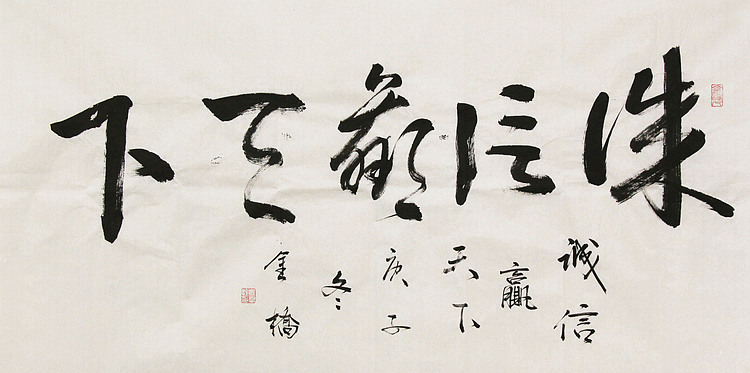 诚信赢天下
誠信
贏
天下
庚子
冬
金橋